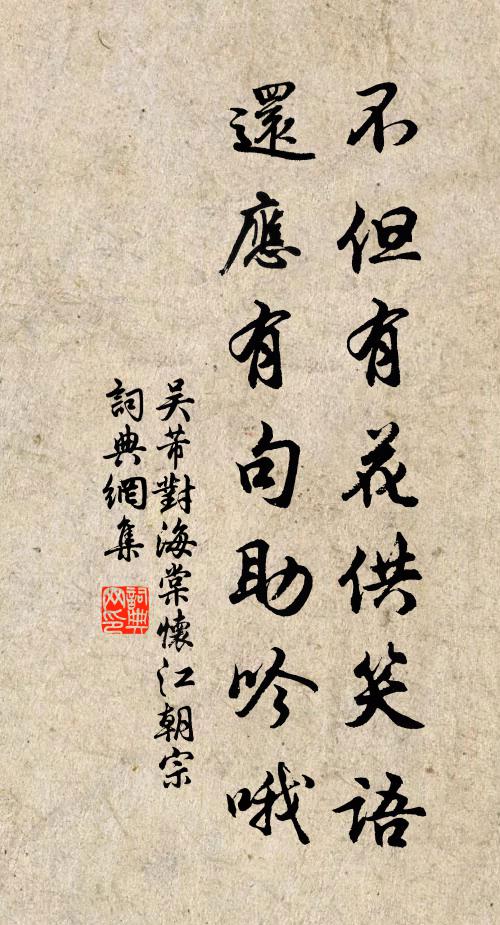 不但有花供笑語
還應有句助吟哦
吴芾對海棠懷江朝宗
詞典網集
詞典网印